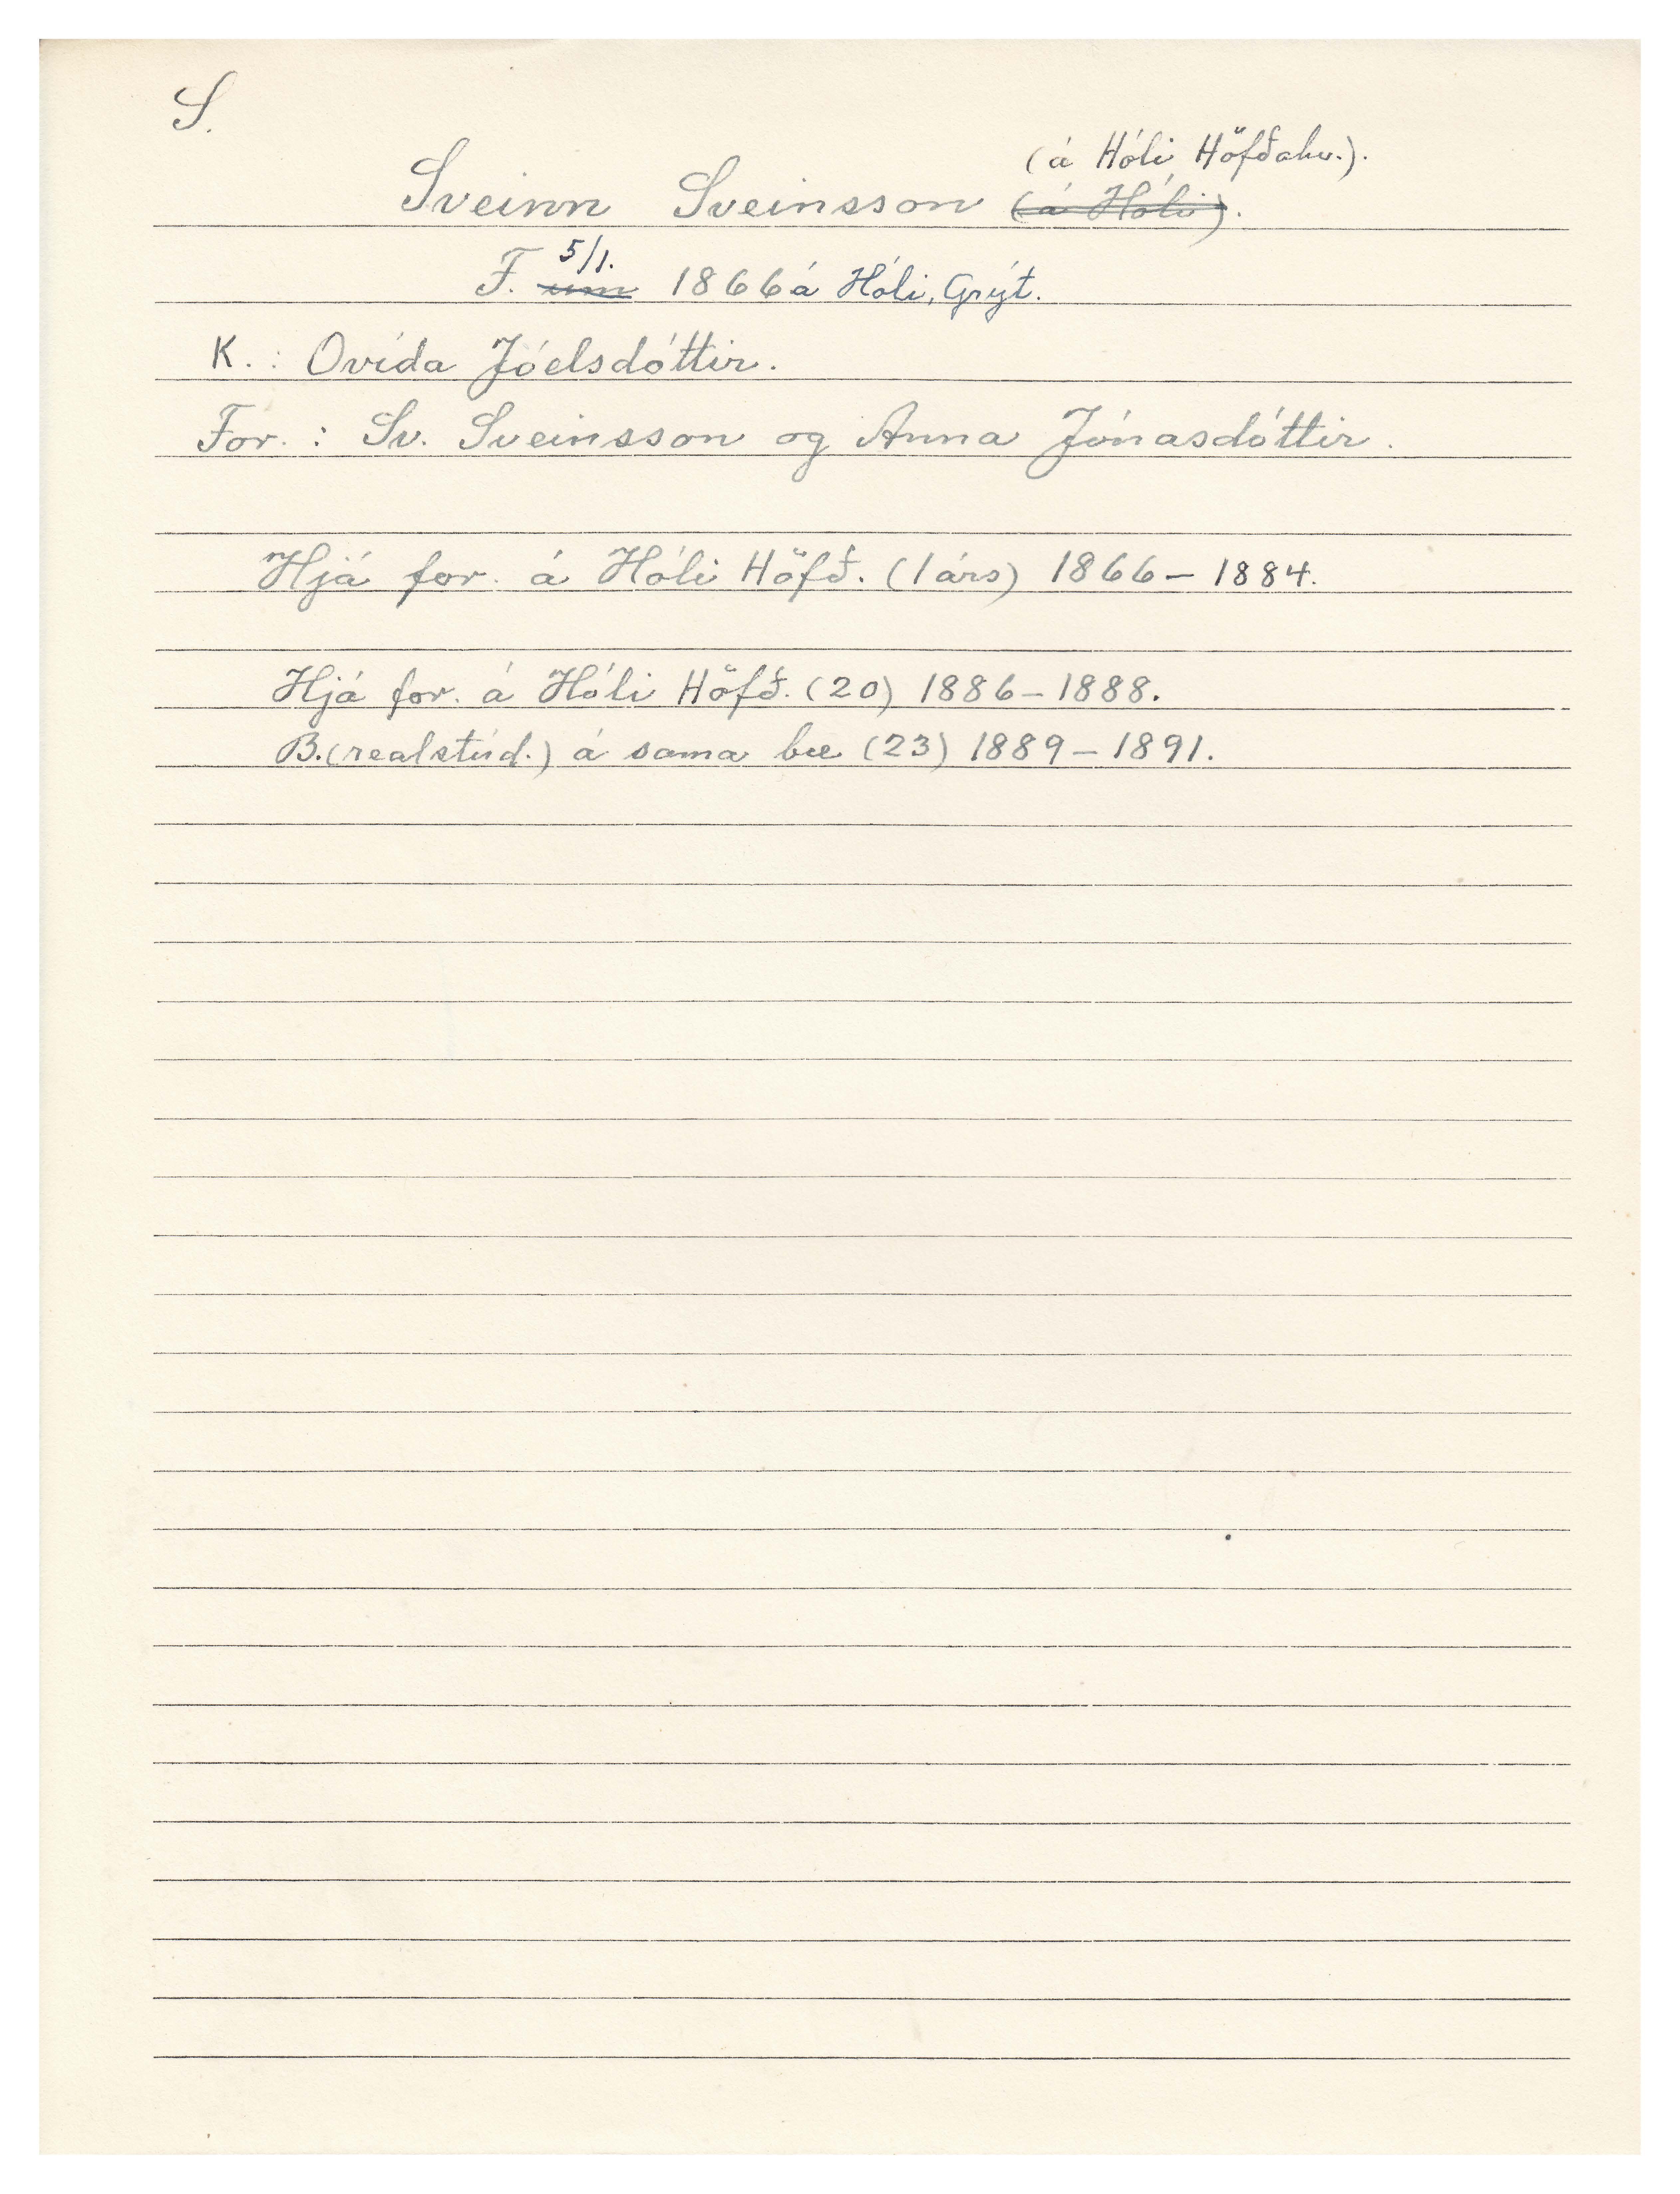 S.
(á Hóli Höfðahv.).
Sveinn Sveinsson (á Hóli).
5/1.
F. um 1866 á Hóli, Grýt.
K. : Ovída Jóelsdóttir.
For. : Sv. Sveinsson og Anna Jónasdóttir.
Hjá for. á Hóli Höfð. (1 árs) 1866 – 1884.
Hjá for. á Hóli Höfð. (20) 1886 – 1888.
B. (realstúd.) á sama bæ (23) 1889 – 1891.